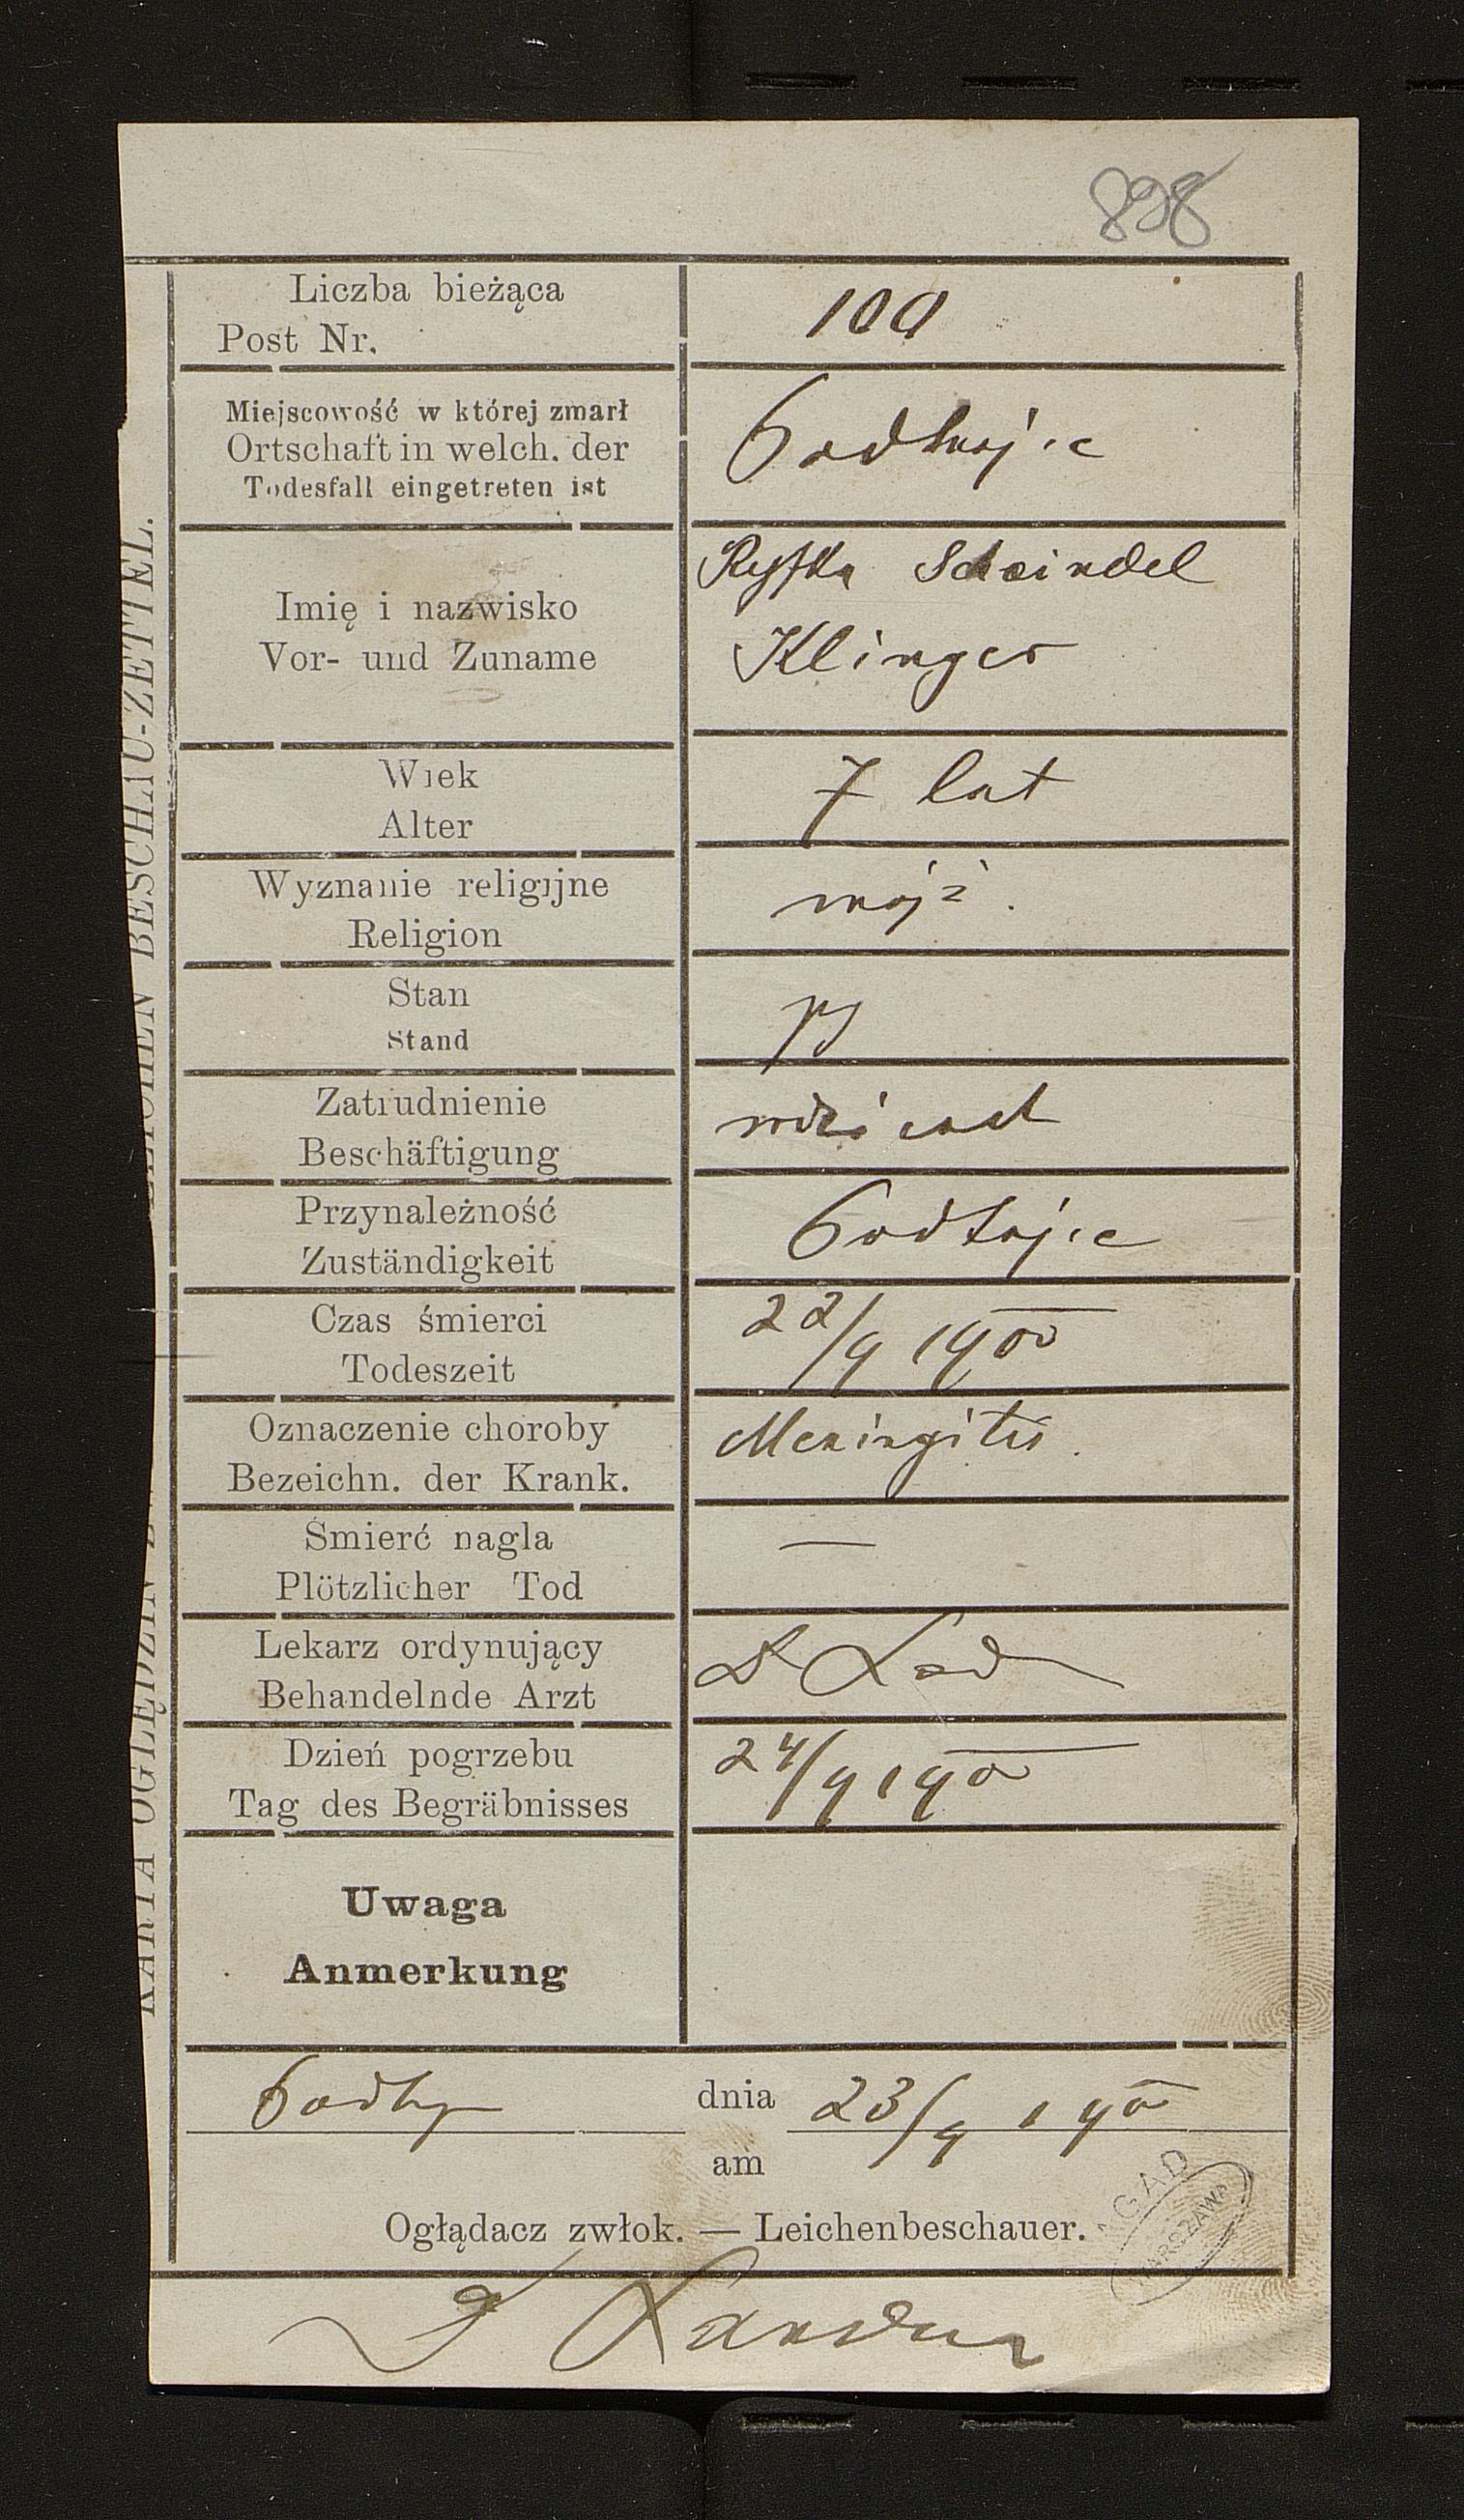 898
Liczba bieżąca
Post Nr.
109
Miejscowość w której zmarł
Ortschaft in welch. der
Todesfall eingetreten ist
Podhajce
Imię i nazwisko
Vor- und Zuname
Ryfka Scheindel
Klinger
Wiek
Alter
7 lat
Wyznanie religijne
Religion
mojż.
Stan
Stand
Zatrudnienie
Beschäftigung
Przynależność
Zuständigkeit
Podhajce
Czas śmierci
Todeszeit
22/9 1900
Oznaczenie choroby
Bezeichn. der Krank.
Meningitis.
Śmierć nagla
Plötzlicher Tod
—
Lekarz ordynujący
Behandelnde Arzt
Dr
Dzień pogrzebu
Tag des Begräbnisses
24/9 1900
Uwaga
Anmerkung
dnia 23/9 1900
am
Oglądacz zwłok. — Leichenbeschauer.
Dr Landau
KARTA OGLĘDZIN
LEICHEN BESCHAU-ZETTEL.
AGAD
WARSZAWA